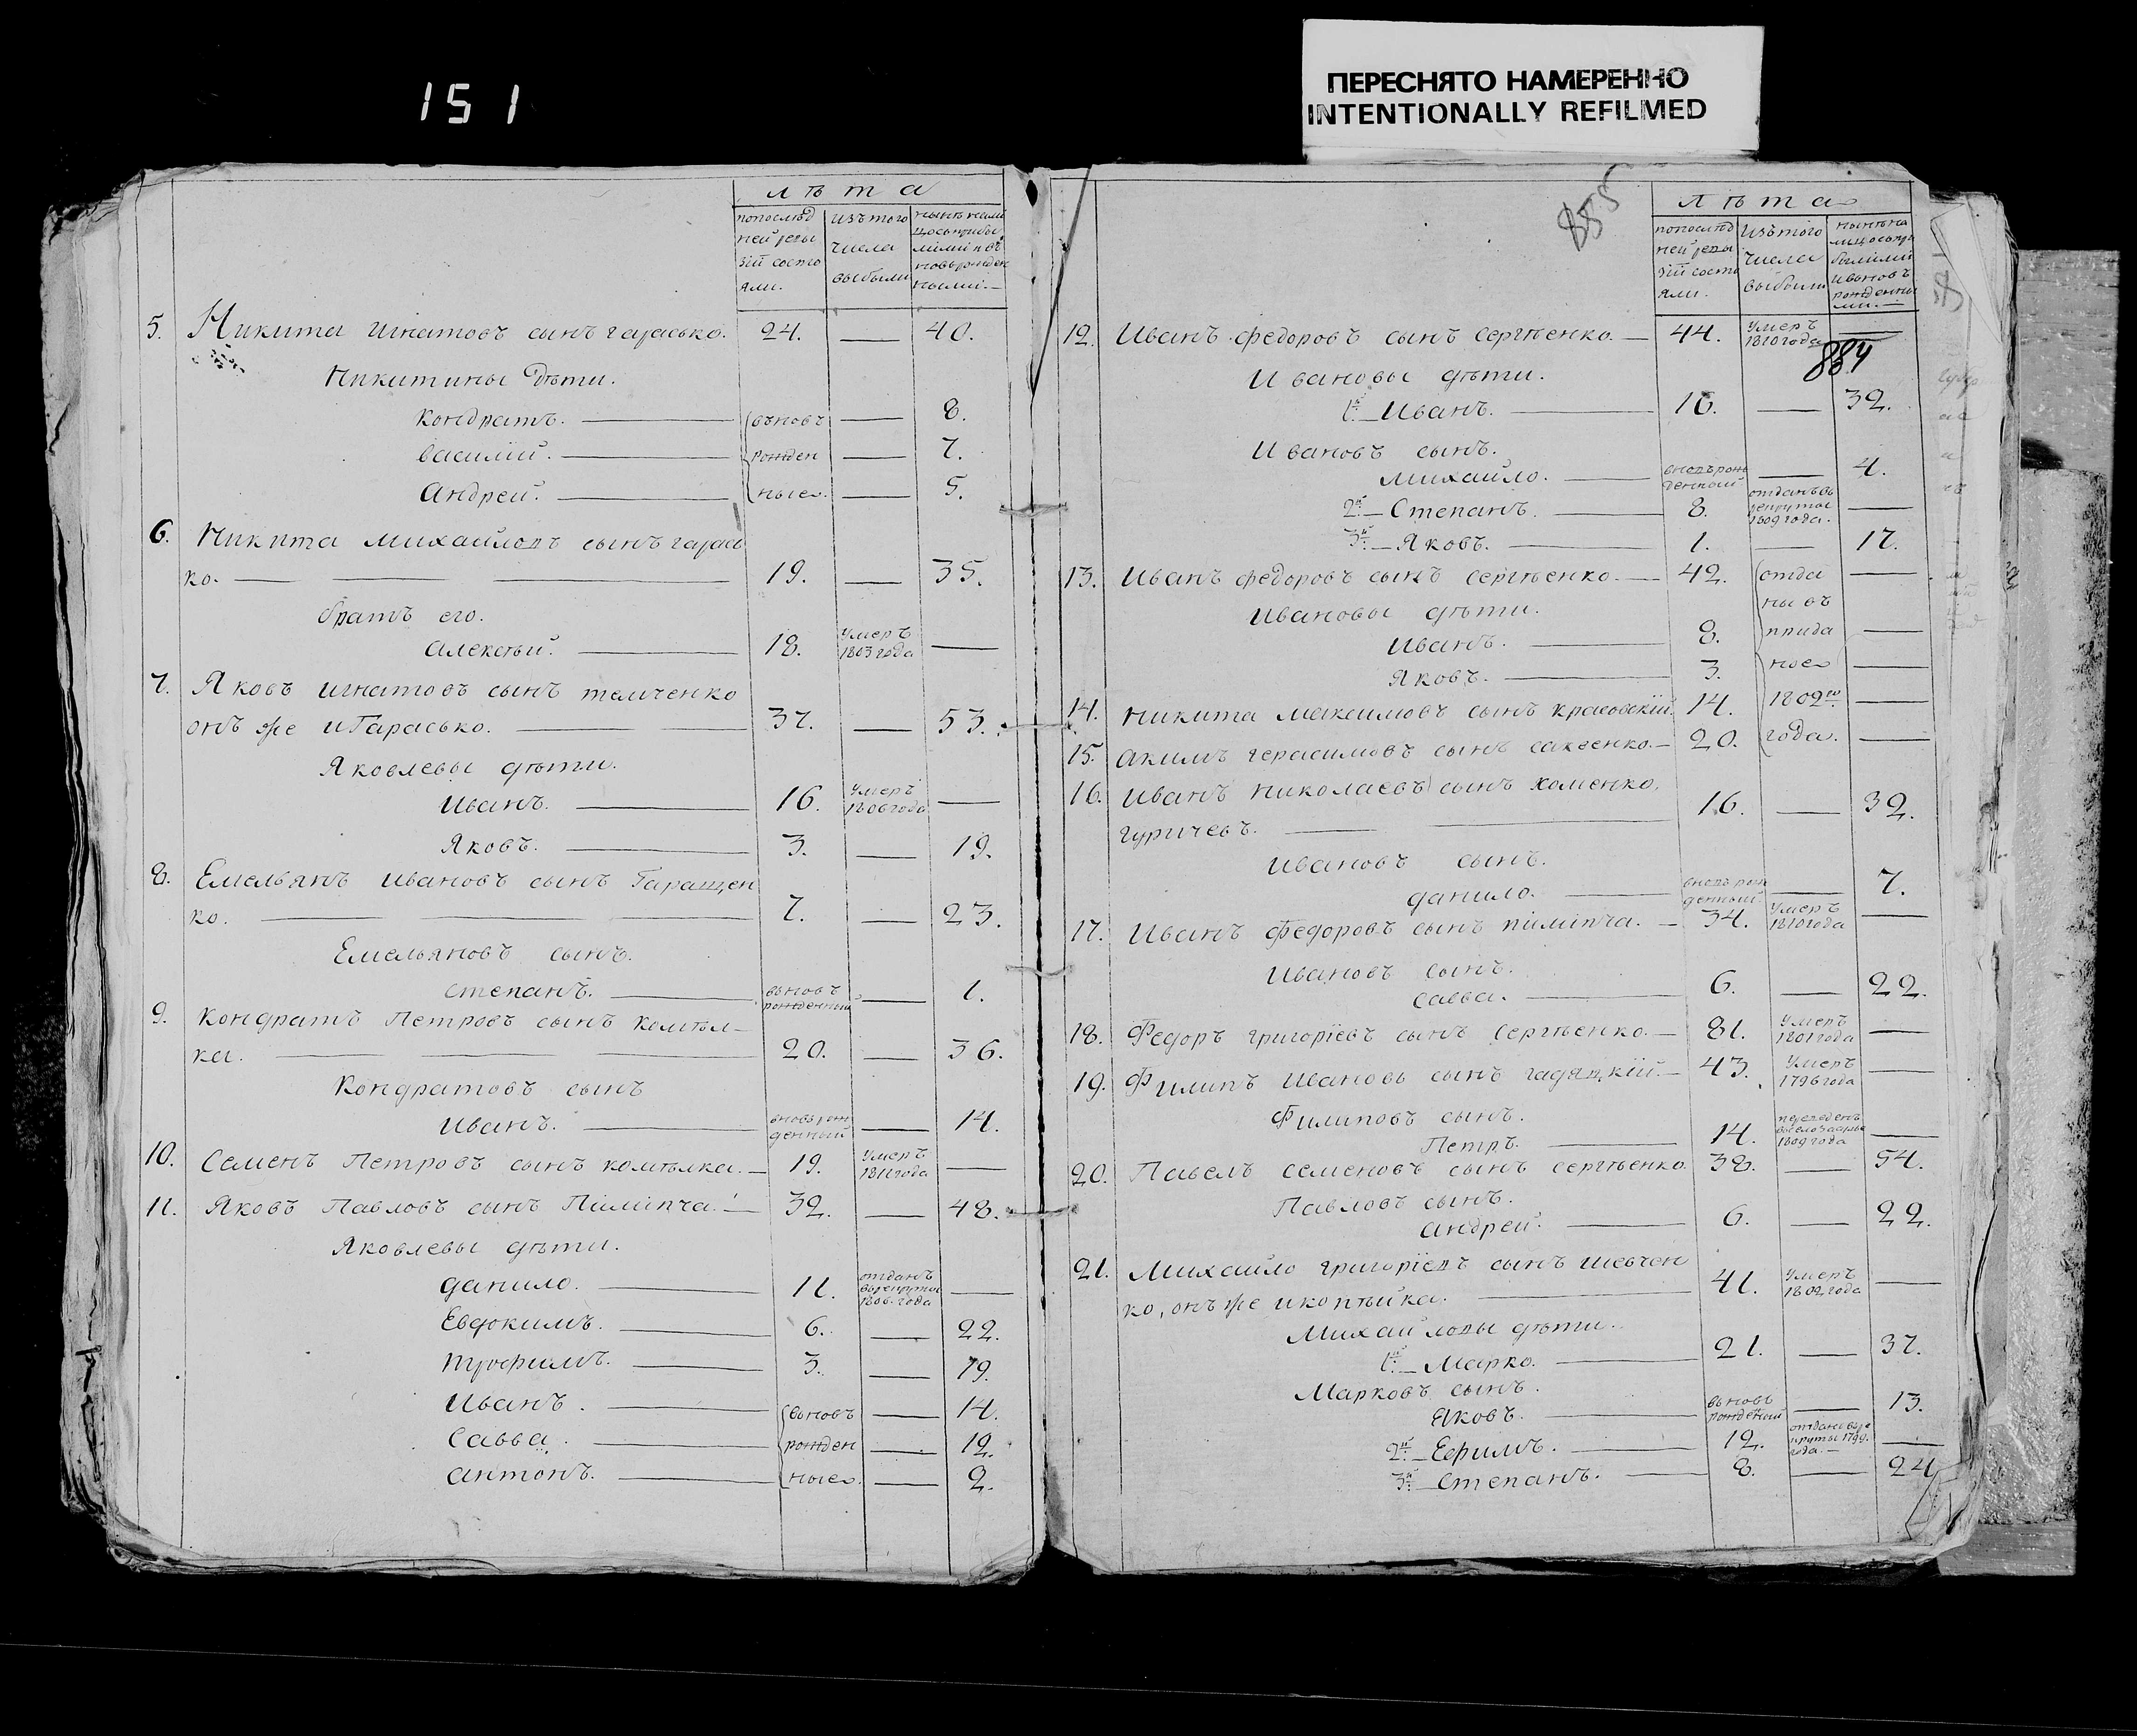 151
ПЕРЕСНЯТО НАМЕРЕННО
INTENTIONALLY REFILMED
лѣта
попослѣд ней ревизіи состояли.
изъ того числа выбыли
5. Никита Игнатовъ сынъ гарасько. 24. — 40.
Никитины дѣти.
Кондратъ. — вьновъ — 8.
Василій. — рожден — 7.
Андрей. — ные — 5.
6. Никита Михайловъ сынъ гарась
ко. — 19. — 35.
братъ его.
Алексѣй. — 18. умеръ 1803 года —
7. Яковъ Игнатовъ сынъ темченко
онъ же и Гарасько. — 37. — 53.
Яковлевы дѣти.
Иванъ. — 16. умеръ 1806 года —
Яковъ. — 3. — 19.
8. Емельянъ Ивановъ сынъ Таращен
ко. — 7. — 23.
Емельяновъ сынъ.
Степанъ. — вьновъ рожденный — 1.
9. Кондратъ Петровъ сынъ Комѣл-
ка. — 20. — 36.
Кондратовъ сынъ
Иванъ. — вновь рожденный — 14.
10. Семенъ Петровъ сынъ комѣлка. — 19. умеръ 1811 года —
11. Яковъ Павловъ сынъ Пилипча. — 32. — 48.
Яковлевы дѣти.
Данило. — 11. отданъ в рекруты 1806. года —
Евдокимъ. — 6. — 22.
Трофимъ. — 3. — 19.
Иванъ. — вьновъ — 14.
Савва. — рожден — 12.
Антонъ. — ные — 2.
885
лѣта
попослѣд ней ревизіи состояли.
изъ того числа выбыли
884
12. Иванъ Федоровъ сынъ Сергѣенко. — 44. умеръ 1810 года —
Ивановы дѣти.
1й — Иванъ. — 16. — 32.
Ивановъ сынъ.
Михайло. — вновь рожденный — 4.
2й — Степанъ. — 8. отданъ въ рекруты 1809 года. —
3й — Яковъ. — 1. — 17.
13. Иванъ Федоровъ сынъ Сергѣенко. — 42. отда —
Ивановы дѣти. ны въ
Иванъ. — 8. прида —
Яковъ. — 3. ное —
14. Никита Максимовъ сынъ Красовскій. 14. 1802го —
15. Акимъ Герасимовъ сынъ Сахненко. — 20. года. —
16. Иванъ Николаевъ сынъ Хоменко,
гуричевъ. — 16. — 32.
Ивановъ сынъ.
Данило. — вновь рожденный — 7.
17. Иванъ Федоровъ сынъ пилипча. — 34. умеръ 1810 года —
Ивановъ сынъ.
Савва. — 6. — 22.
18. Федоръ Григоріевъ сынъ Сергѣенко. — 81. умеръ 1801 года —
19. Филипъ Ивановъ сынъ гадяцкій. — 43. умеръ 1796 года —
Филиповъ сынъ.
Петръ. — 14. 1809 года —
20. Павелъ Семеновъ сынъ Сергѣенко. 38. — 54.
Павловъ сынъ.
Андрей. — 6. — 22.
21. Михайло Григоріевъ сынъ Шевчен
ко, онъ же и копѣйка. — 41. умеръ 1802 года —
Михайловы дѣти.
1й — Марко. — 21. — 37.
Марковъ сынъ.
Яковъ. — вьновъ рожденый — 13.
2й — Ефимъ. — 12. отданъ в рекруты 1799. года. —
3й — Степанъ. — 8. — 24